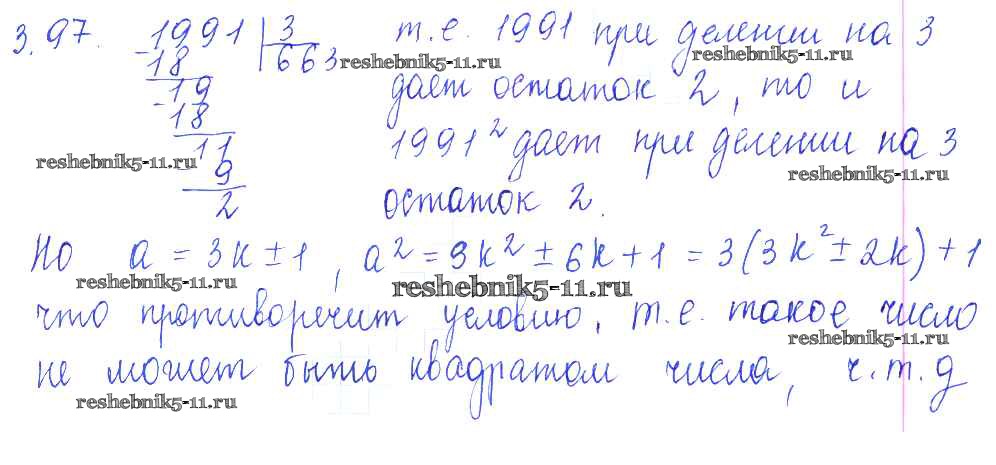 3.97. 1991 | 3 т.е. 1991 при делении на 3
18 663 reshebnik5-11.ru reshebnik5-11.ru
19 дает остаток 2, то и
18
11 1991² дает при делении на 3
reshebnik5-11.ru 9 reshebnik5-11.ru
2 остаток 2.
Но a = 3k ± 1, a² = 9k² ± 6k + 1 = 3(3k² ± 2k) + 1
reshebnik5-11.ru reshebnik5-11.ru
что противоречит условию, т.е. такое число
reshebnik5-11.ru
не может быть квадратом числа, ч.т.д
reshebnik5-11.ru